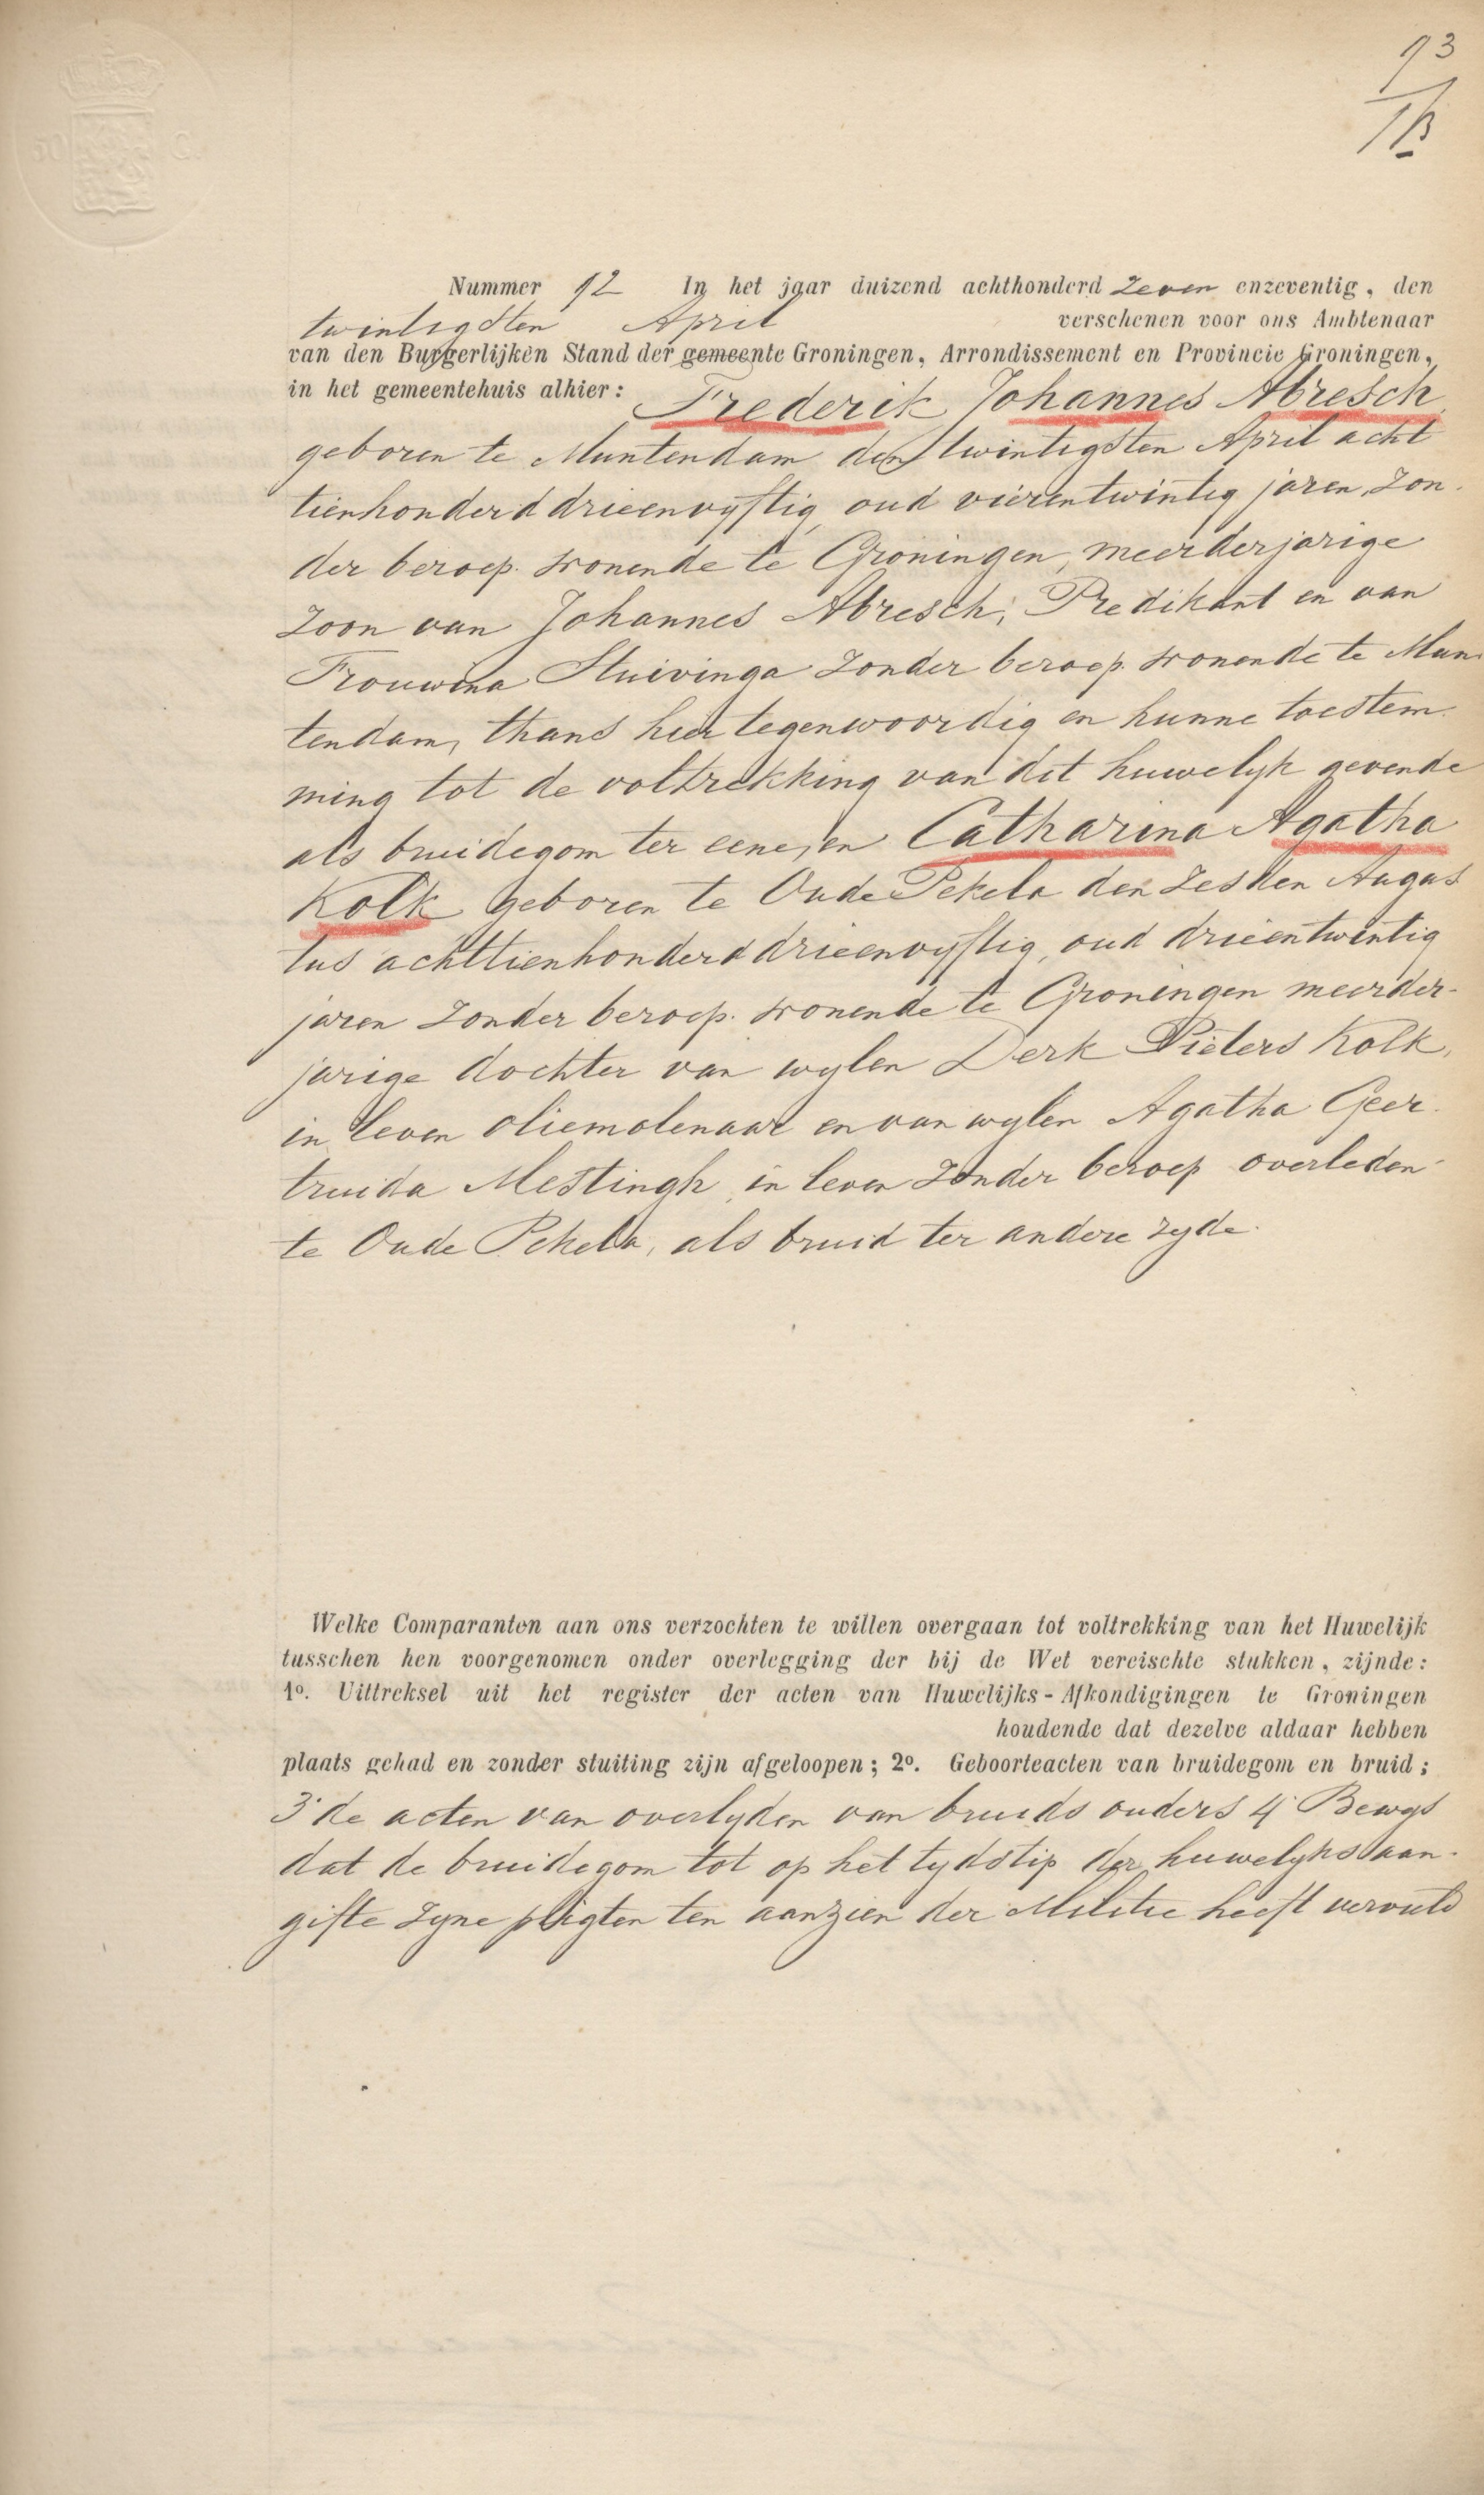 93
Nummer 92 In het jaar duizend achthonderd zeven enzeventig, den
twintigsten April verschenen voor ons Ambtenaar
van den Burgerlijken Stand der gemeente Groningen, Arrondissement en Provincie Groningen,
in het gemeentehuis alhier: Frederik Johannes Abresch
geboren te Muntendam den twintigsten April acht
tienhonderd drieenvyftig, oud vierentwintig jaren, zon
der beroep. wonende te Groningen, meerderjarige
zoon van Johannes Abresch, Predikant en van
Frouwina Stuivinga zonder beroep wonende te Mun
tendam, thans hier tegenwoordig en hunne toestem
ming tot de voltrekking van dit huwelyk gevende
als bruidegom ter eene, en Catharina Agatha
Kolk geboren te Oude Pekela den zesden Augus
tus achttienhonderd drieenvyftig, oud drieentwintig
jaren zonder beroep. wonende te Groningen meerder-
jarige dochter van wylen Derk Pieters Kolk,
in leven oliemolenaar en van wylen Agatha Geer
truida Mestingh, in leven zonder beroep overleden
te Oude Pekela, als bruid ter andere zyde.
Welke Comparanten aan ons verzochten te willen overgaan tot voltrekking van het Huwelijk
tusschen hen voorgenomen onder overlegging der bij de Wet vereischte stukken, zijnde:
1o. Uittreksel uit het register der acten van Huwelijks-Afkondigingen te Groningen
houdende dat dezelve aldaar hebben
plaats gehad en zonder stuiting zijn afgeloopen; 2o. Geboorteacten van bruidegom en bruid;
3o de acten van overlyden van bruids ouders 4o Bewys
dat de bruidegom tot op het tydstip der huwelyks aan-
gifte zyne pligten ten aanzien der Militie heeft vervuld